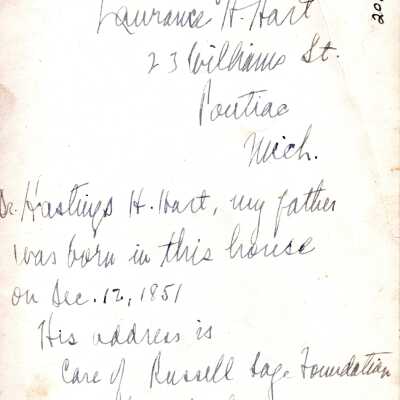 Laurance H. Hart
23 Williams St.
Pontiac
Mich.
Dr. Hastings H. Hart, my father
was born in this house
on Dec. 12, 1851
His address is
Care of Russell Sage Foundation